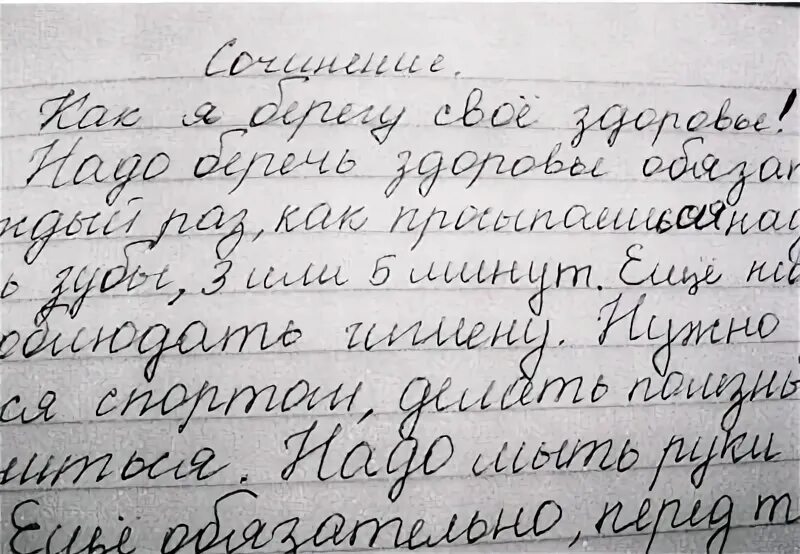 Сочинение.
Как я берегу своё здоровье!
Надо беречь здоровье обяза
ждый раз, как просыпаешься над
ь зубы, 3 или 5 минут. Ещё
облюдать гигиену. Нужно
ся спортом, делать полезны
иться. Надо мыть руки
Ещё обязательно, перед т